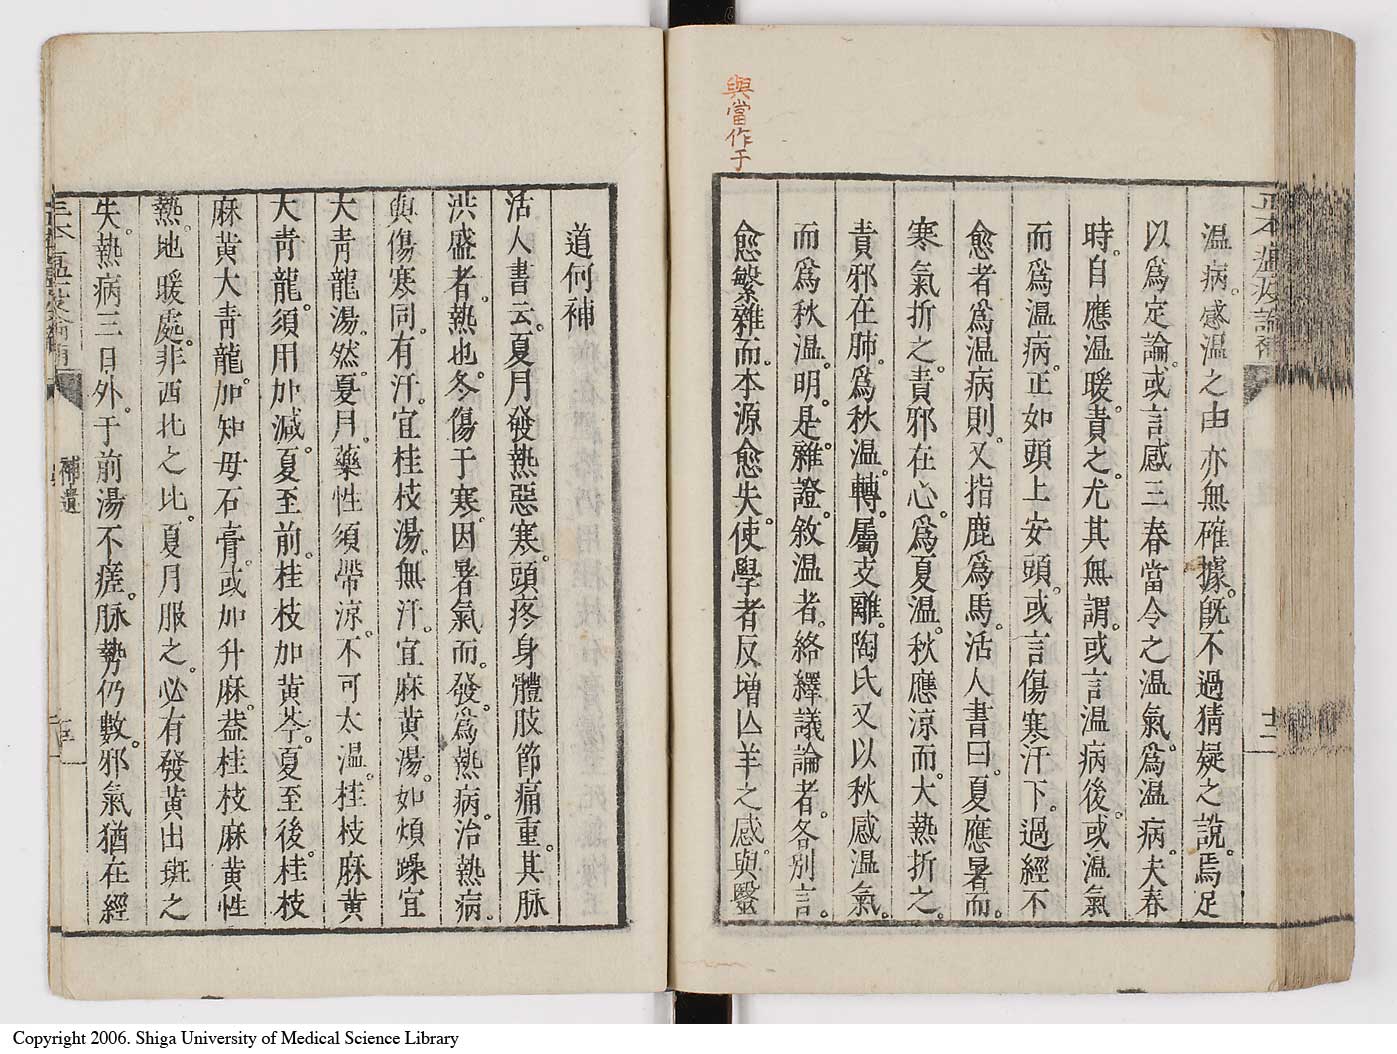 與當作于
正本瘟疫論補
十二
温病。感温之由亦無確據。既不過猜疑之說。焉足
以爲定論。或言感三春當令之温氣。爲温病。夫春
時。自應温暖。責之。尤其無謂。或言温病後。或温氣
而爲温病。正如頭上安頭。或言傷寒汗下。過經不
愈者爲温病則。又指鹿爲馬。活人書曰。夏應暑而。
寒氣折之。責邪在心。爲夏温。秋應涼而。大熱折之。
責邪在肺。爲秋温。轉。屬支離。陶氏又以秋感温氣。
而爲秋温。明。是。雜。證。敘温者。絡繹議論者。各別言。
愈繁雜而。本源愈失。使學者反增亾羊之感與醫
道何補
活人書云。夏月發熱惡寒。頭疼身體肢節痛重。其脉
洪盛者。熱也。冬。傷于寒。因暑氣而。發。爲熱病。治熱病。
與傷寒同。有汗。宜桂枝湯。無汗。宜麻黄湯。如煩躁宜
大青龍湯。然。夏月。藥性須帶凉。不可太温。桂枝麻黄
大青龍。須用加減。夏至前。桂枝加黄芩。夏至後。桂枝
麻黄大青龍。加知母石膏。或加升麻。葢桂枝麻黄性
熱。地暖處。非西北之比。夏月服之。必有發黄出斑之
失。熱病三日外。于前湯不瘥。脉勢仍數。邪氣猶在經
補遺
Copyright 2006. Shiga University of Medical Science Library